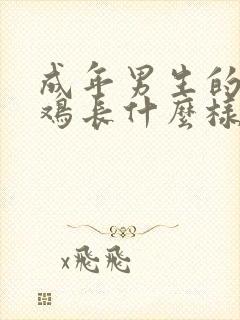 成年男生的
鸡长什麼樣
x飛飛